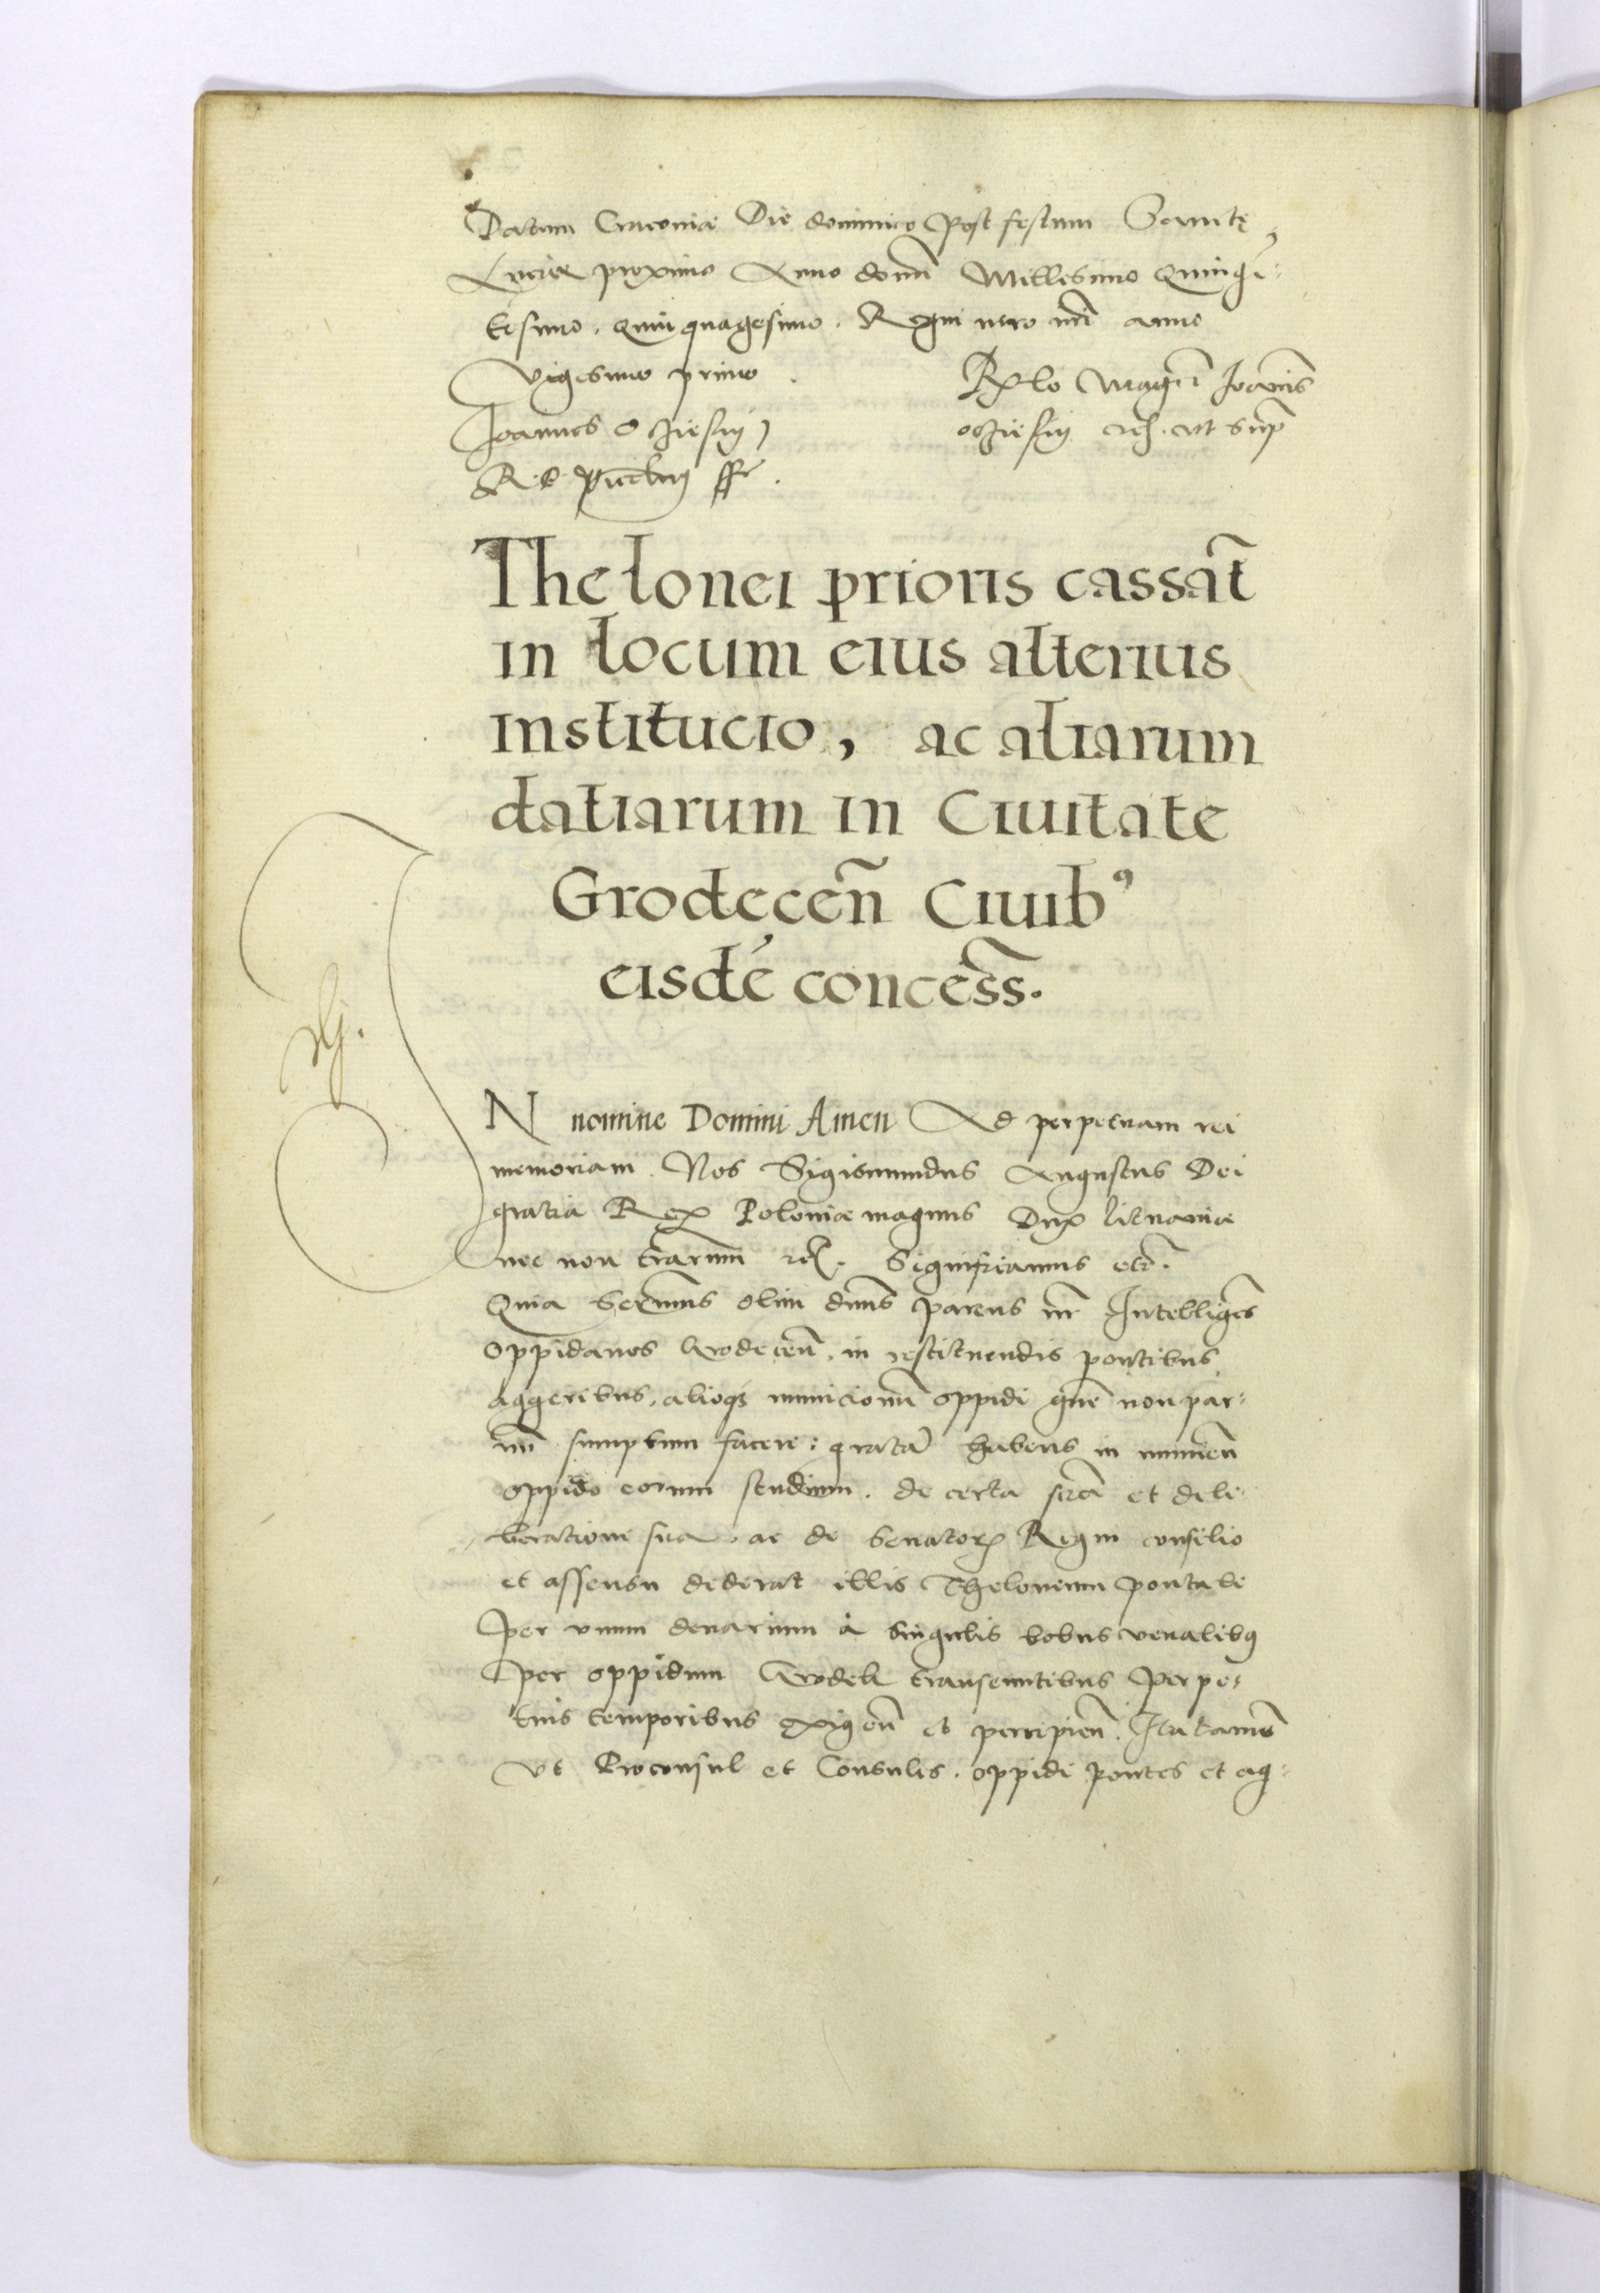 Datum Cracouiæ Die dominico Post festum Sanctę
Luciæ proximo Anno domī Millesimo Quingē-
tesimo. Quinquagesimo. Regni uero nrī anno
Vigesimo primo.
Relo Magci Ioannis
Joannes Oczieskij
oczieskij etc. vt supr
R. P. Vicecancellarius sst.
Thelonei prioris cassat̄
in locum eius alterius
institucio, ac aliarum
datiarum in Ciuitate
Grodeceñ Ciuibꝰ
eisdē concess̄.
IN nomine Domini Amen Ad perpetuam rei
memoriam. Nos Sigismundus Augustus Dei
gratia Rex Poloniæ magnus Dux lituaniæ
nec non trarum etc. Significamus etc.
Quia Sermus olim dnus parens nr Intelligēs
oppidanos Grodeceñ. in restituendis pontibus
aggeribus, alioq municionū oppidi gne non par-
uū sumptum facere: gratā habens in munieñ
oppido eorum studium. de certa sciā et deli-
beratione sua. ac de Senatorꝝ Regni consilio
et assensu dederat illis Theloneum pontale
per vnum denarium à singulis bobus venalibꝰ
per oppidum Grodek transeuntibus perpe-
tuis temporibus exigeñ et percipieñ. Ita tamē
vt Proconsul et Consules. oppidi pontes et ag-